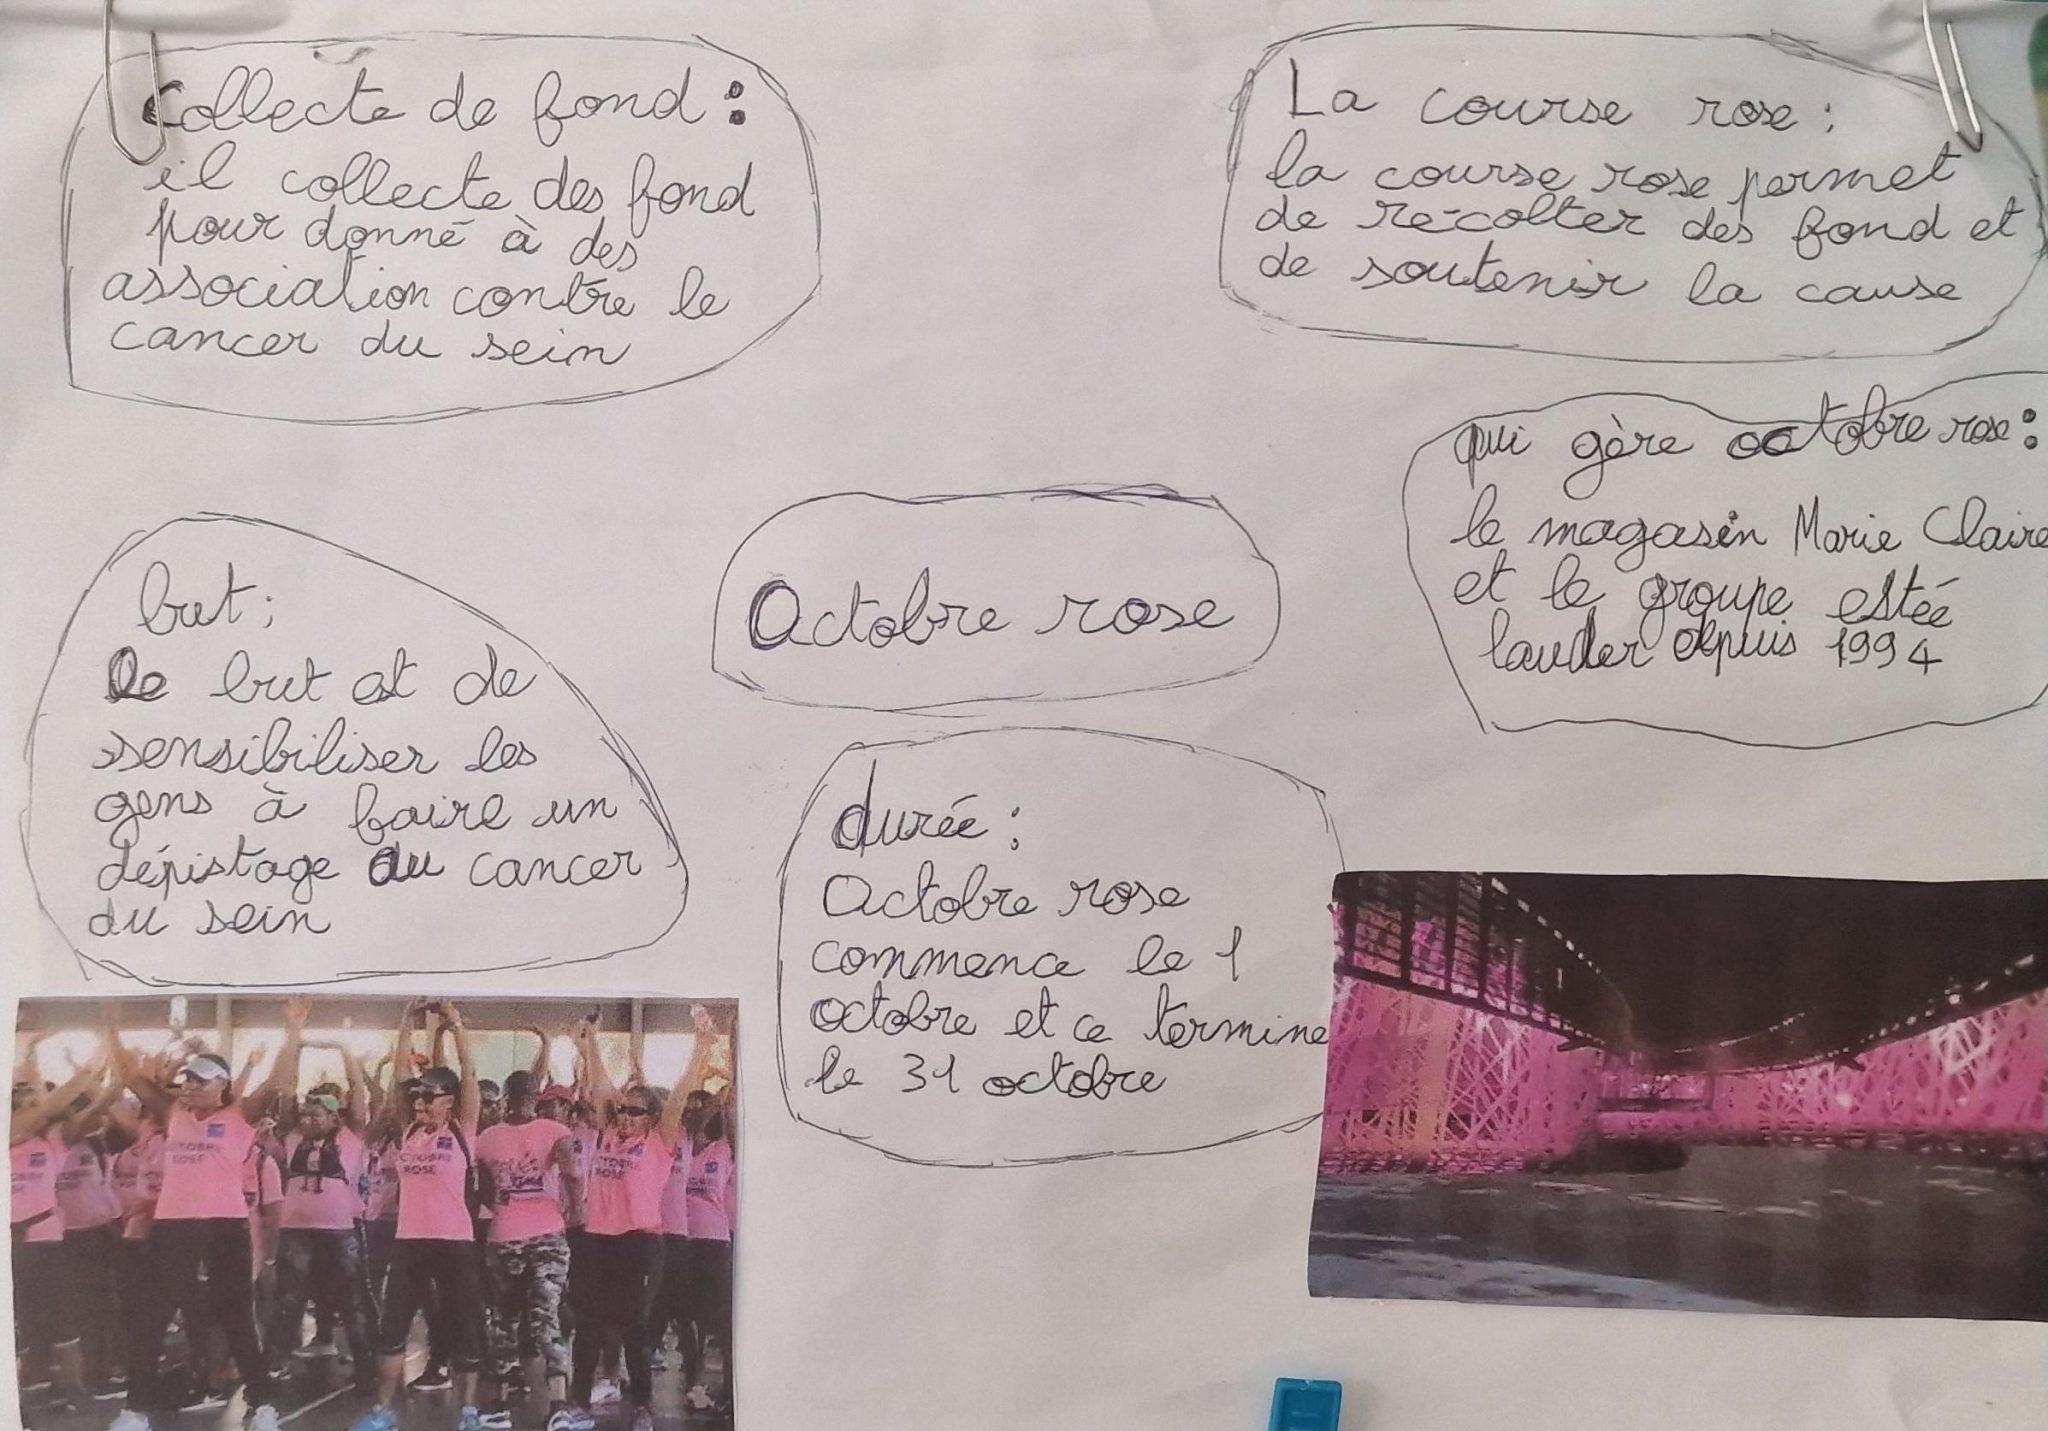 Collecte de fond :
il collecte des fond
pour donné à des
association contre le
cancer du sein
La course rose :
la course rose permet
de récolter des fond et
de soutenir la cause
qui gère octobre rose :
le magasin Marie Claire
et le groupe estée
lauder depuis 1994
Octobre rose
but :
Le but est de
sensibiliser les
gens à faire un
dépistage du cancer
du sein
durée :
Octobre rose
commence le 1
octobre et ce termine
le 31 octobre
CTOBRE
ROSE
CTOBRE
ROSE
CTOBRE
ROSE